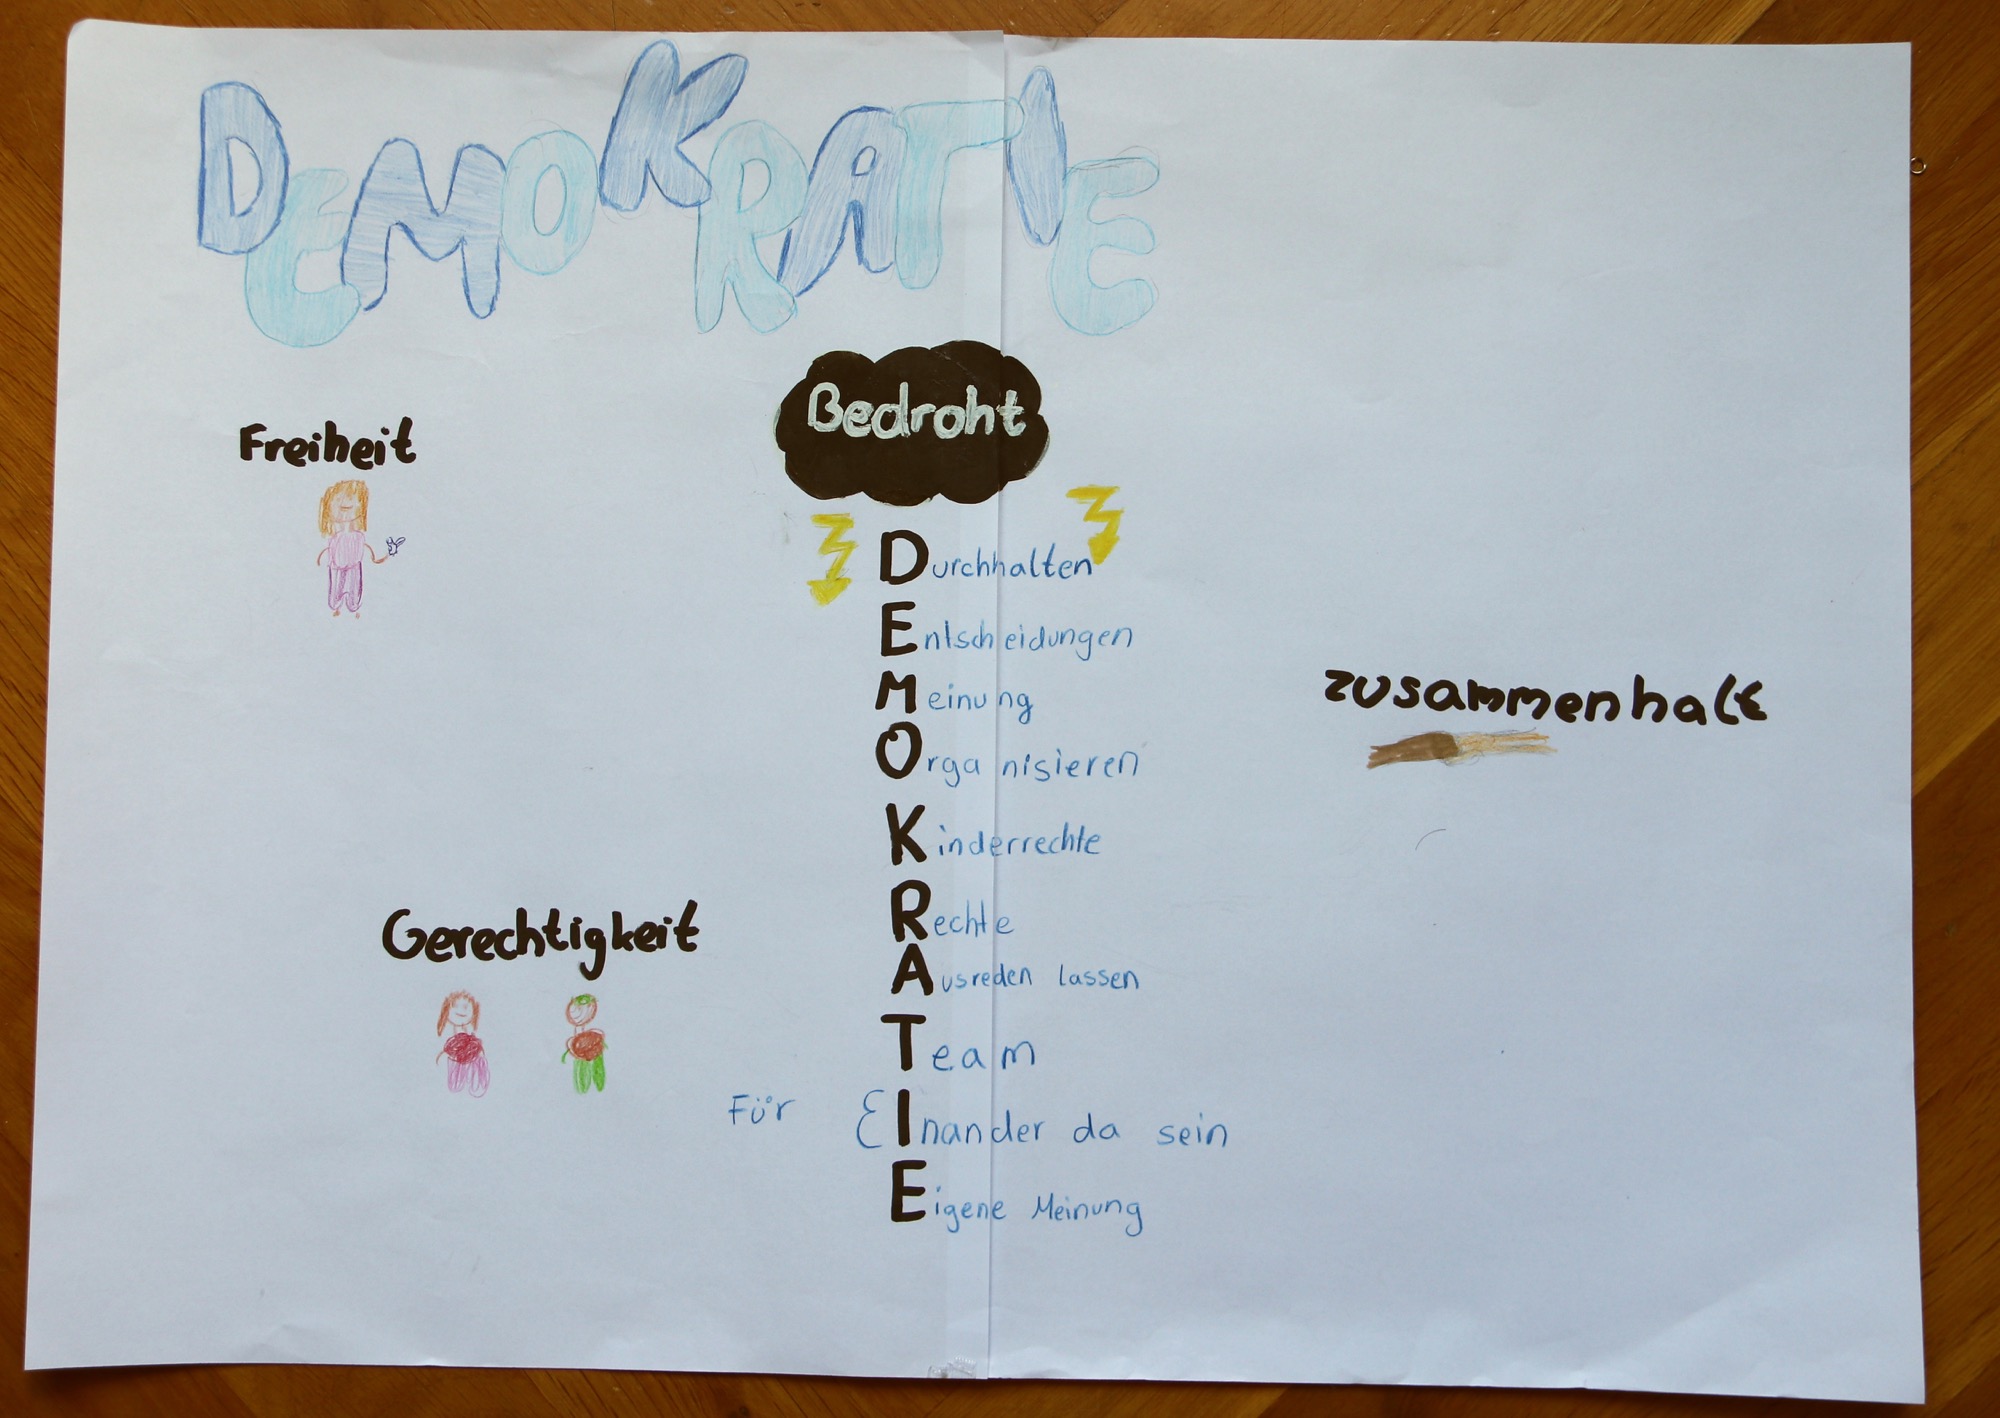 DEMOKRATIE
Bedroht
Freiheit
Durchhalten
Entscheidungen
Meinung
zusammenhalt
Organisieren
Kinderrechte
Gerechtigkeit
Rechte
Ausreden lassen
Team
Für EInander da sein
Eigene Meinung